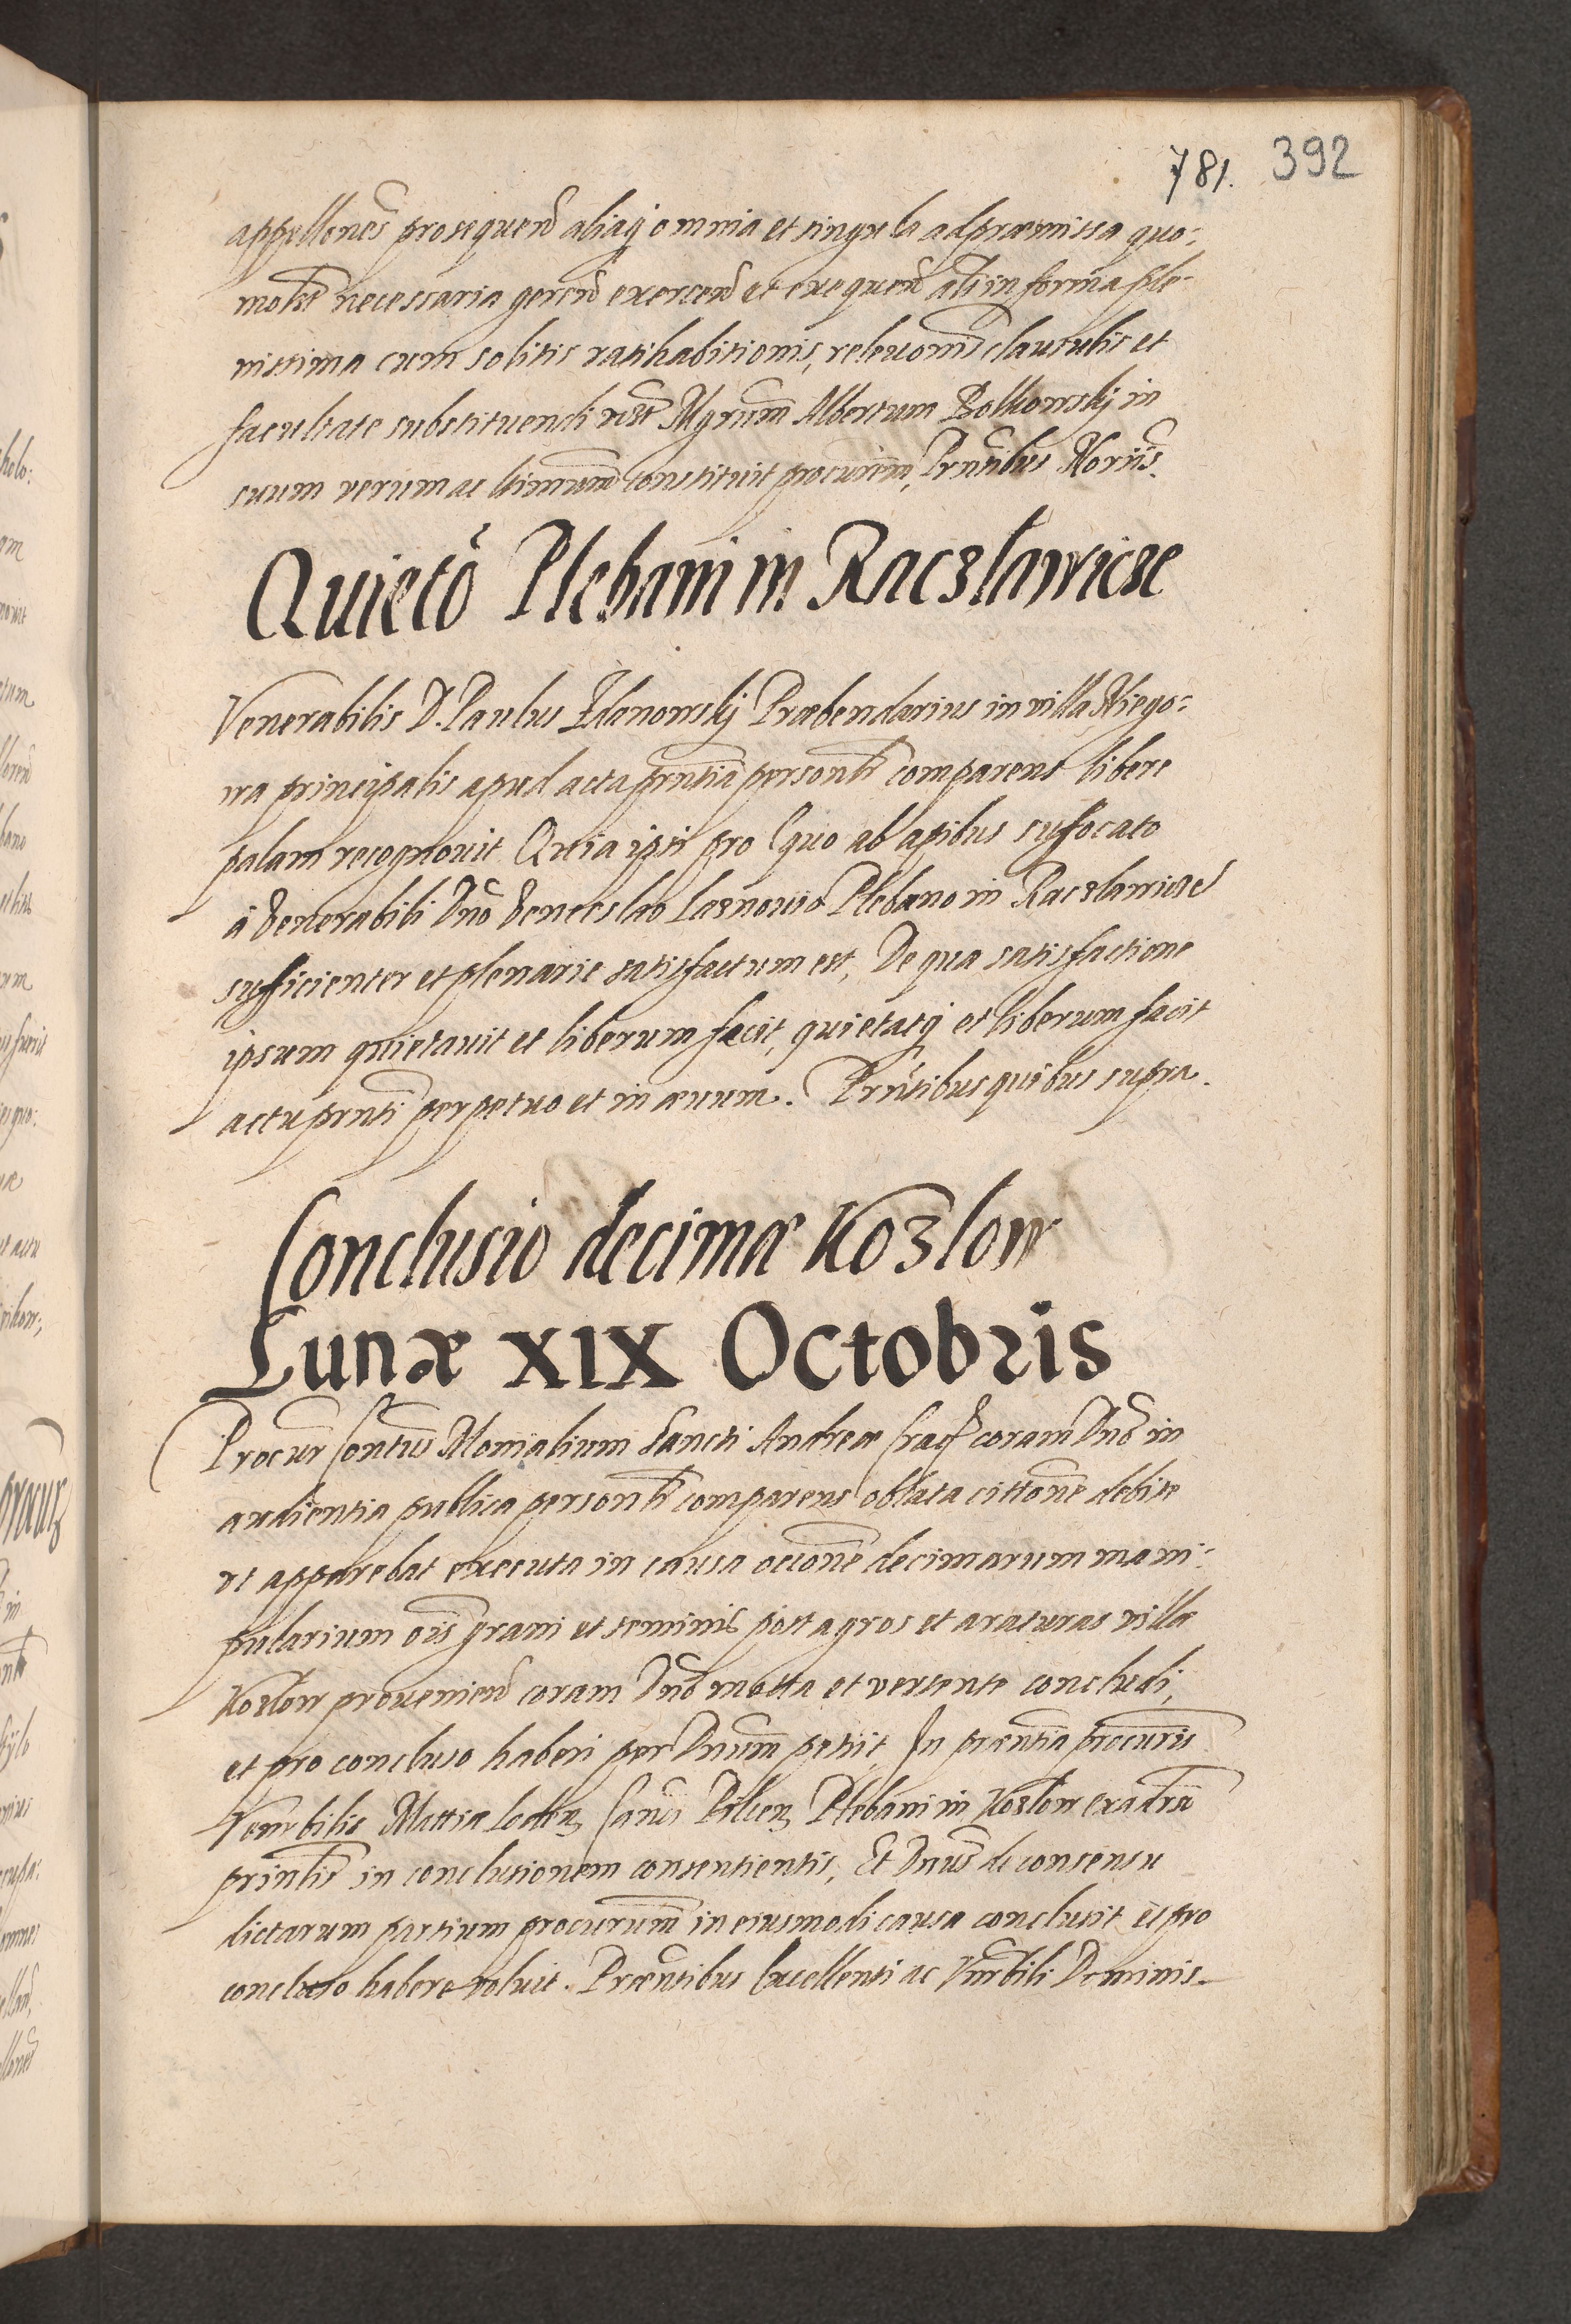 781. 392
appellones prosequend aliaq omnia et singula ad præmissa quo:
molibet necessaria gerend exercend et exequend alt in forma ple-
nissima cum solitis ratihabitionis, releuonis clausulis et
facultate substituendi Mgrum Albertum Bolkowskj in
suum verum ac ltimum constituit procurem, Prntibus Noriis.
Quietō Plebani in Raczslawicze
Venerabilis D. Paulus Zdanowskj Præbendarius in villa Niego:
wa principalis apud acta prntia personlr comparens libere
palam recognouit Quia ipsi pro equo ab apibus suffocato
à Venerabili Dno Venceslao Plebano in Raczslawicze
sufficienter et plenarie satisfactum est, De qua satisfactione
ipsum quietauit et liberum fecit, quietatq et liberum facit
actu prnti perpetuo et in æuum. Prntibus quibus supra.
Conclusio decimæ Kozlow
Lunæ XIX Octobris
Procur Contus Monialium Sancti Andreæ Crac coram Dno in
audientia publica personlr comparens oblata cittone debite
vt apparebat executa in causa occone decimarum mani:
pularium ois grani et seminis post agros et araturas villæ
Kozlow proueniend coram Dno mota et vertente concludi,
et pro concluso haberi per Dnum petiit, In præntia procuris
Venerbilis Mattiæ Canci Pilcen Plebani in Kozlow ex adrsa
prinlis in conclusionem consentientis, Et Dnus de consensu
dictarum partium procurum in eiusmodi causa conclusit et pro
concluso habere voluit. Præntibus Excellenti ac Vnrbili Dominis